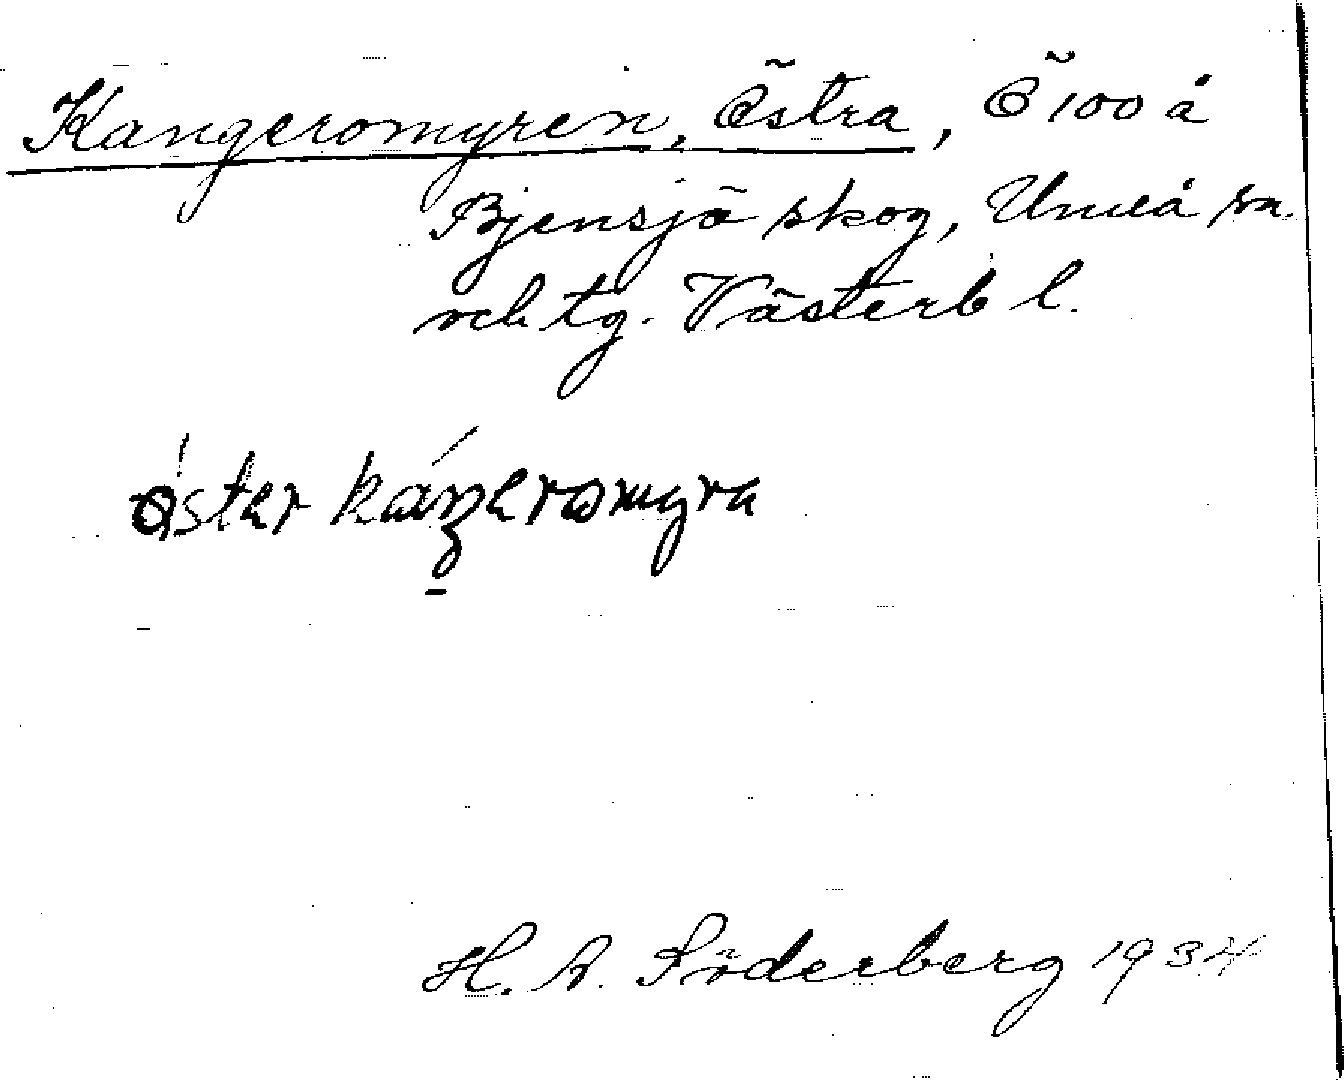 Kangeromyren, Östra, Ö 100 å
Bjensjö skog, Umeå sn.
och tg. Västerb l.
öster káŋeromyra
H. A. Söderberg 1934